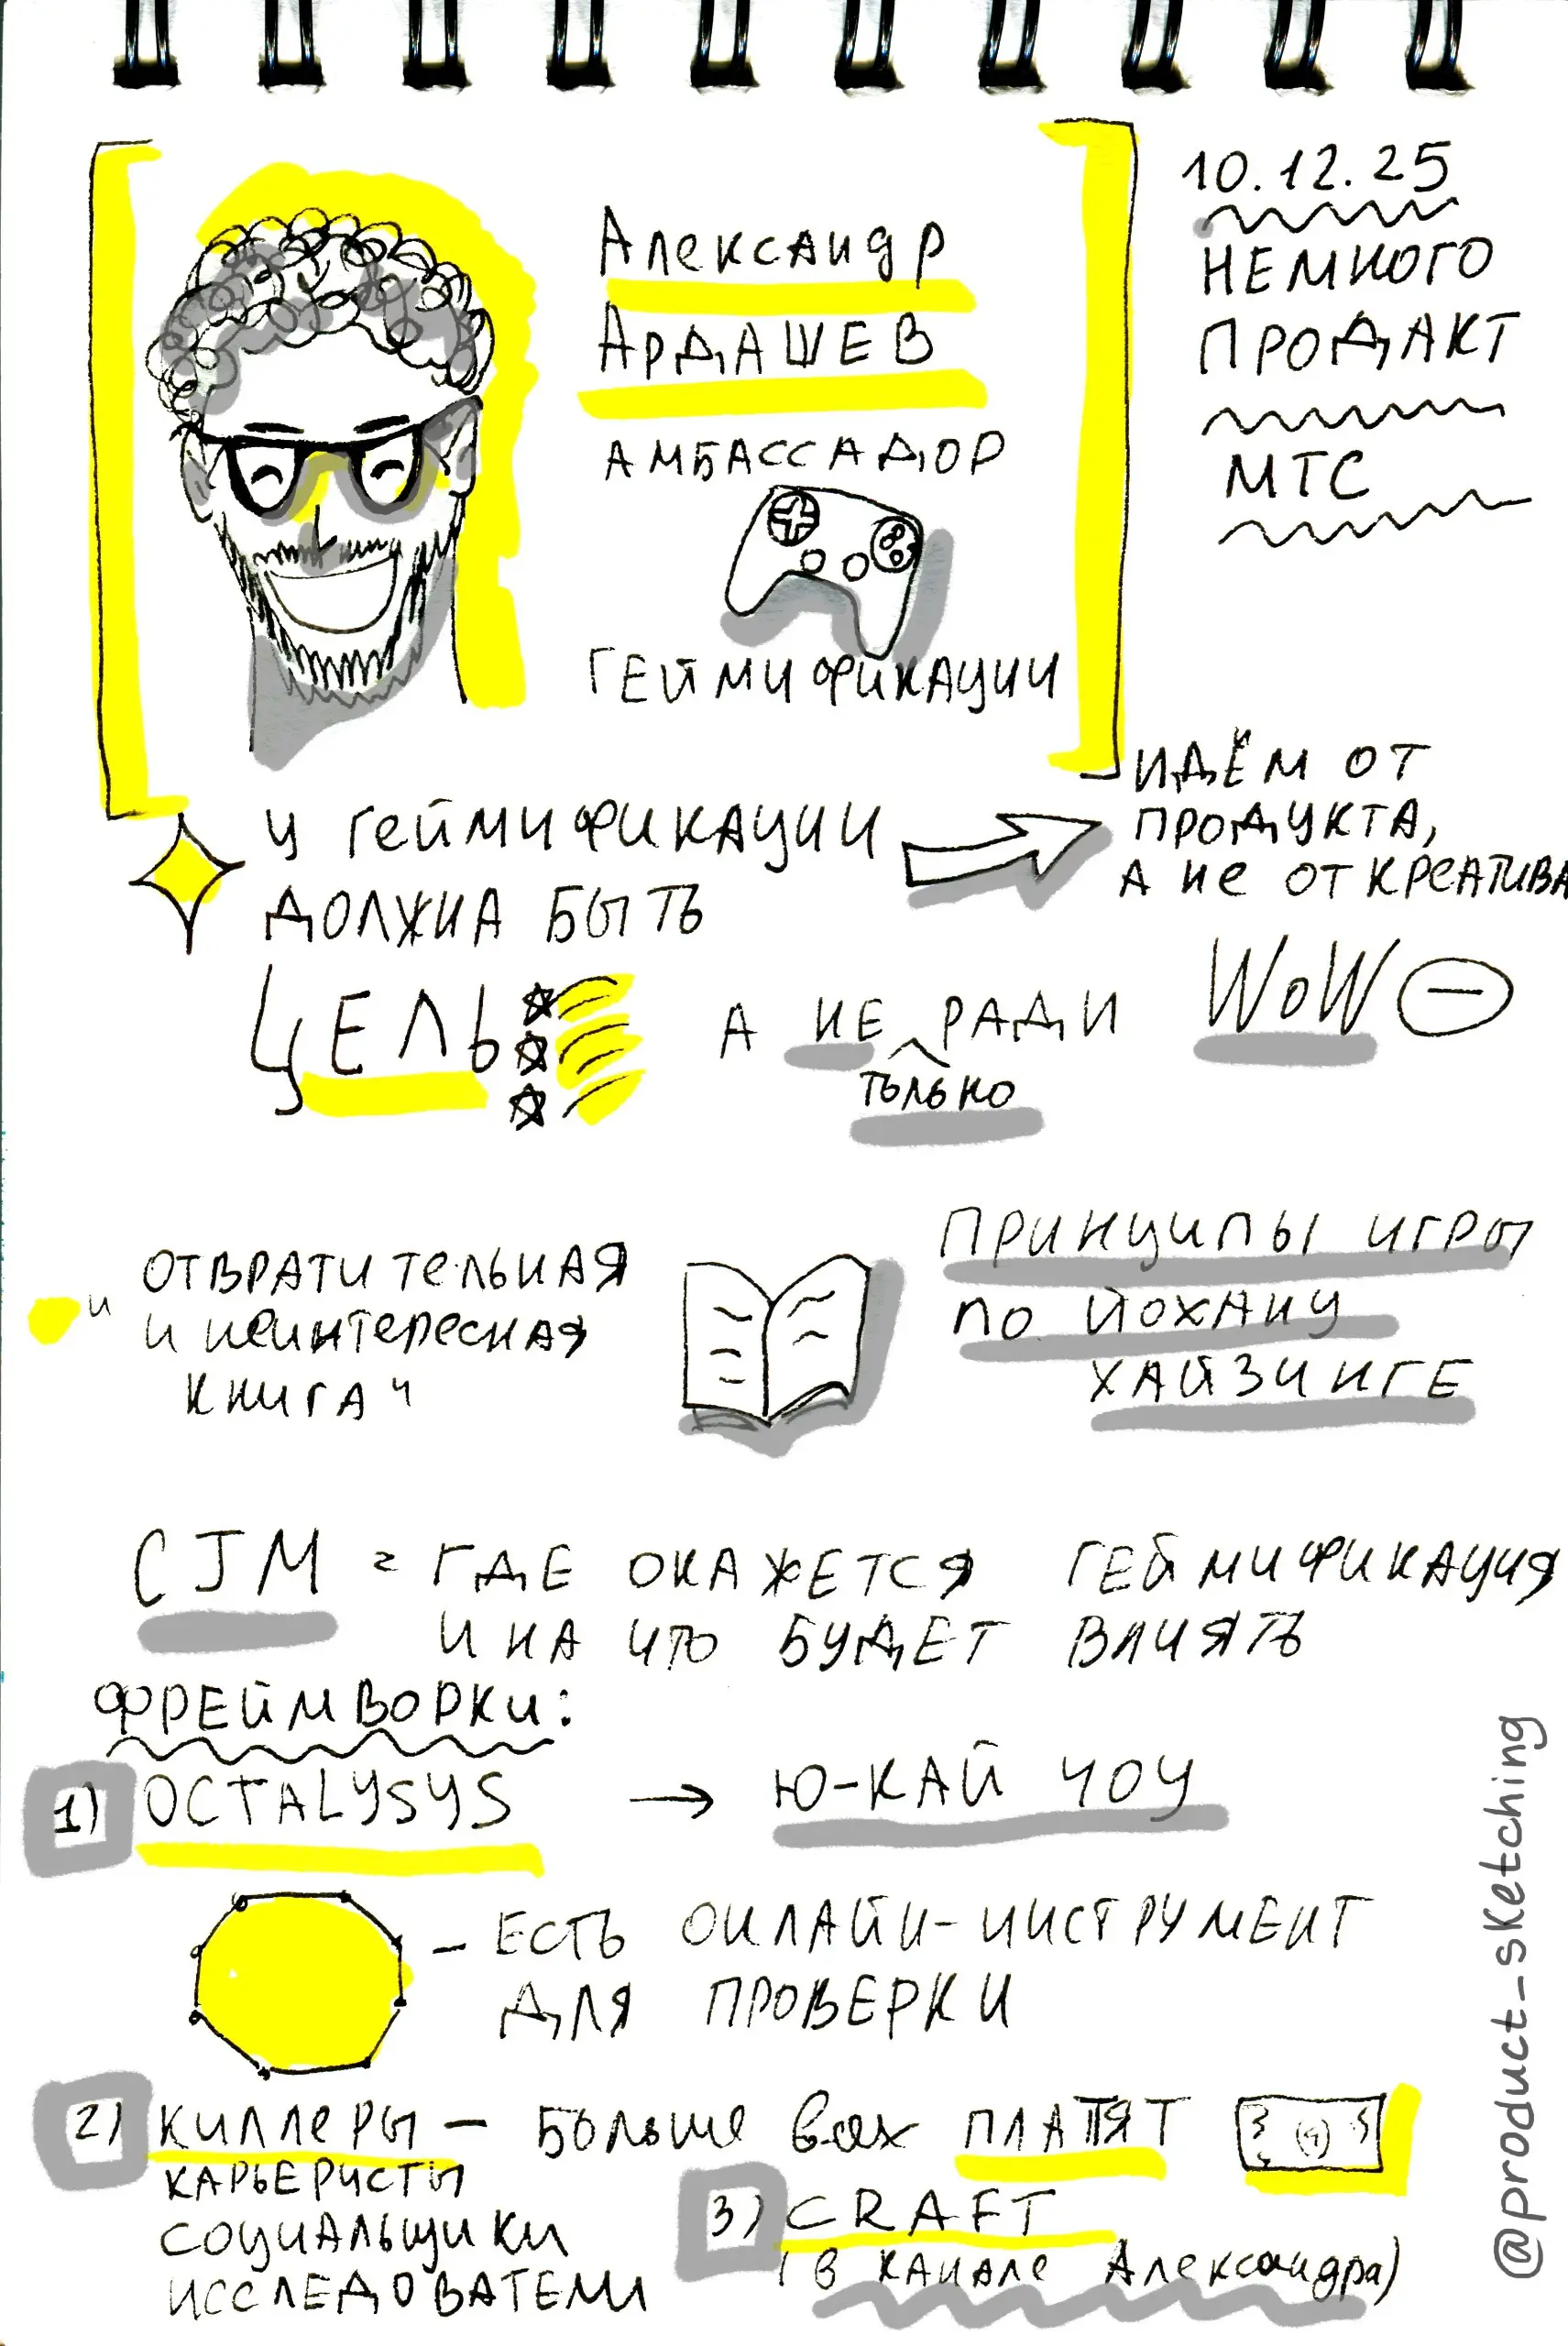 Александр
Ардашев
амбассадор
геймификации
10.12.25
немного
продакт
МТС
у геймификации
должна быть
цель
идём от
продукта,
а не от креатива
а не ради
только
WoW
"отвратительная
и неинтересная
книга"
принципы игры
по Йохану
Хайзинге
CJM = где окажется геймификация
и на что будет влиять
фреймворки:
1) OCTALYSYS → Ю-Кай Чоу
- есть онлайн-инструмент
для проверки
2) киллеры - больше всех платят
карьеристы
социальщики
исследователи
3) CRAFT
(в канале Александра)
@product_sketching